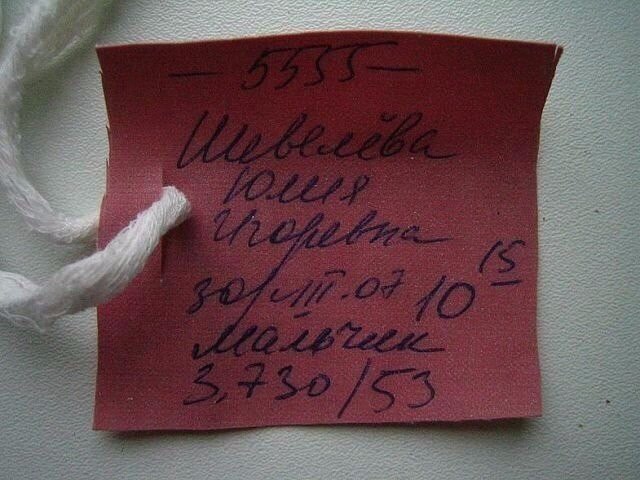 — 5555 —
Шевелёва
Юлия
Игоревна
30/III.07 10 15
Мальчик
3,730/53